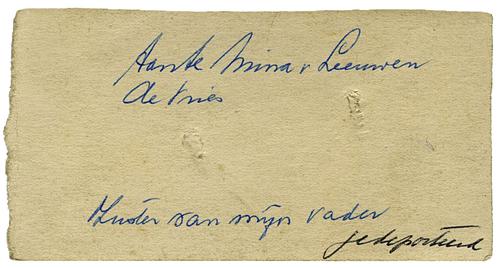 Tante Mina v Leeuwen
de Vries
Zuster van mijn vader
gedeporteerd